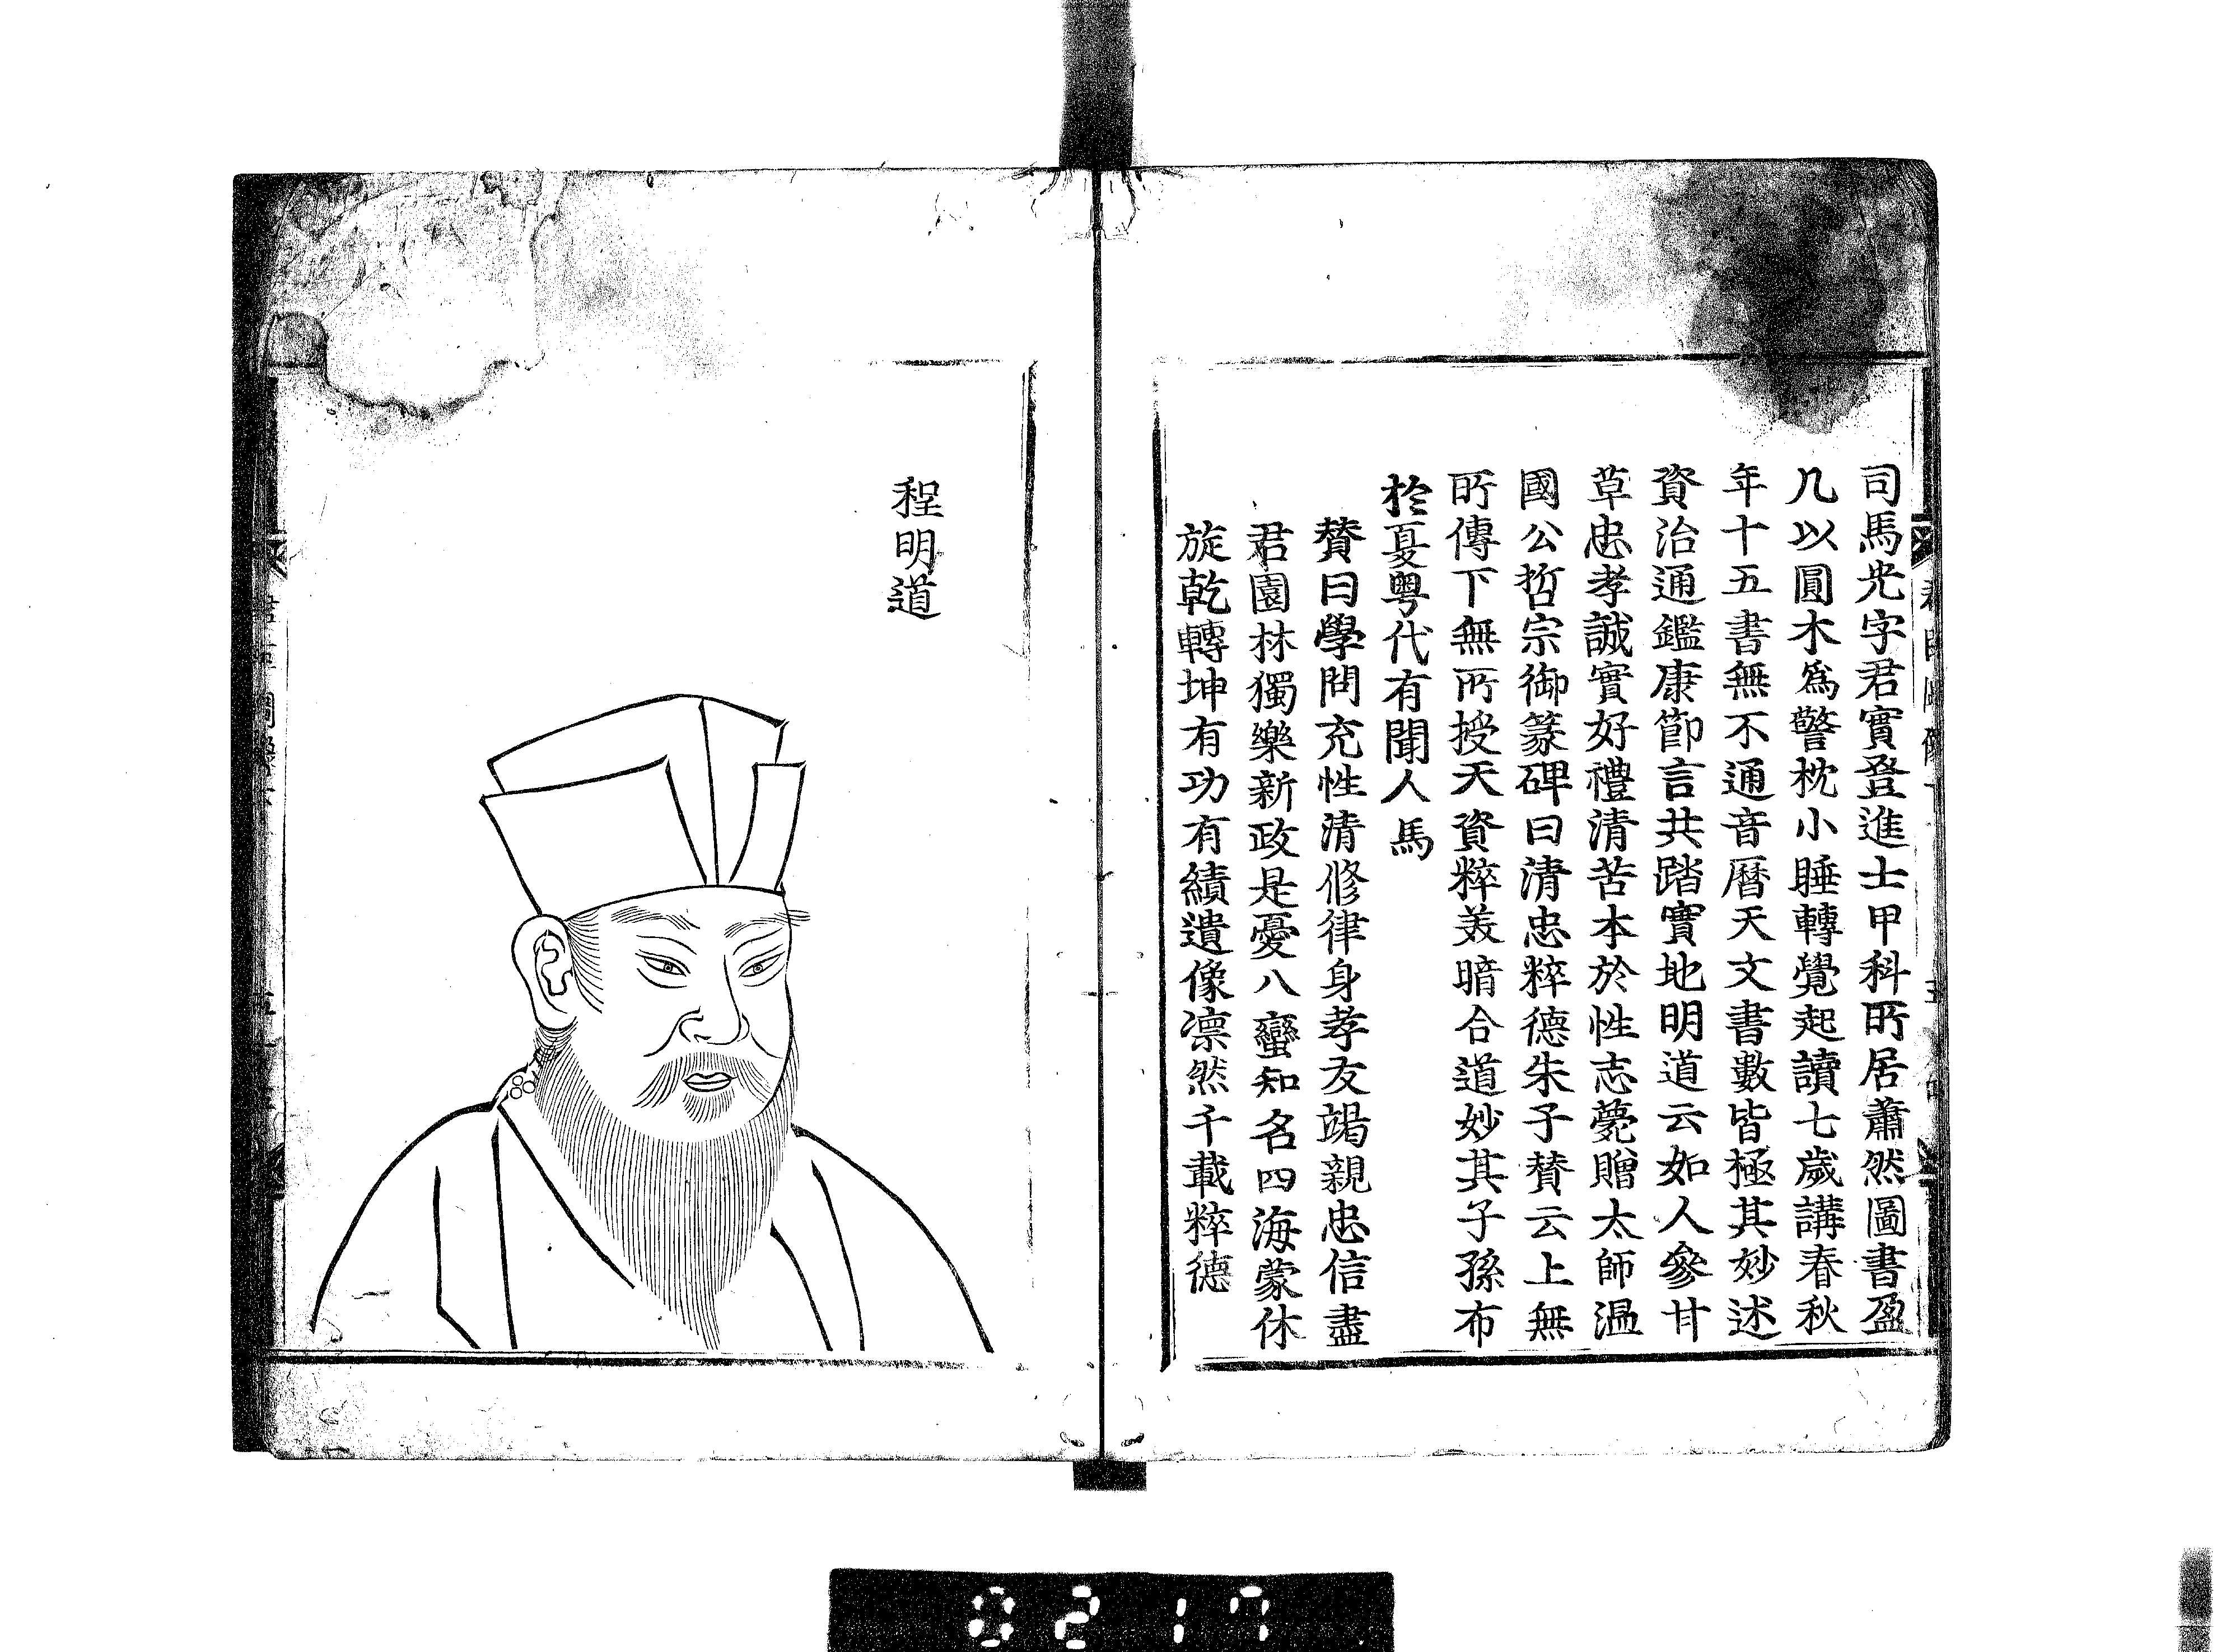 司馬光字君實登進士甲科所居蕭然圖書盈
几以圓木爲警枕小睡轉覺起讀七歲講春秋
年十五書無不通音曆天文書數皆極其妙述
資治通鑑康節言共踏實地明道云如人參甘
草忠孝誠實好禮清苦本於性志薨贈太師温
國公哲宗御篆碑曰清忠粹德朱子贊云上無
所傳下無所授天資粹美暗合道妙其子孫布
於夏粵代有聞人焉
贊曰學問充性清修律身孝友竭親忠信盡
君園林獨樂新政是憂八蠻知名四海蒙休
旋乾轉坤有功有績遺像凛然千載粹德
程明道
0217